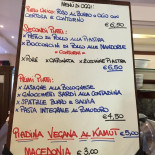 MENÙ DI OGGI:
PIATTO UNICO: RISO AL BURRO O OLIO CON
COTOLETTA E CONTORNO
€ 6,50
SECONDI PIATTI:
• PETTO DI POLLO ALLA PIASTRA
• BOCCONCINI DI POLLO ALLE MANDORLE
+ CONTORNO:
• PURÈ • CAPONATA • ZUCCHINE PIASTRA
€ 6,50
PRIMI PIATTI:
• LASAGNE ALLA BOLOGNESE
• GNOCCHETTI SARDI ALLA CONTADINA
• SPATZLE BURRO E SALVIA
• PASTA INTEGRALE AL POMODORO
€ 4,50
PIADINA VEGANA AL KAMUT
€ 5,00
MACEDONIA € 3,00